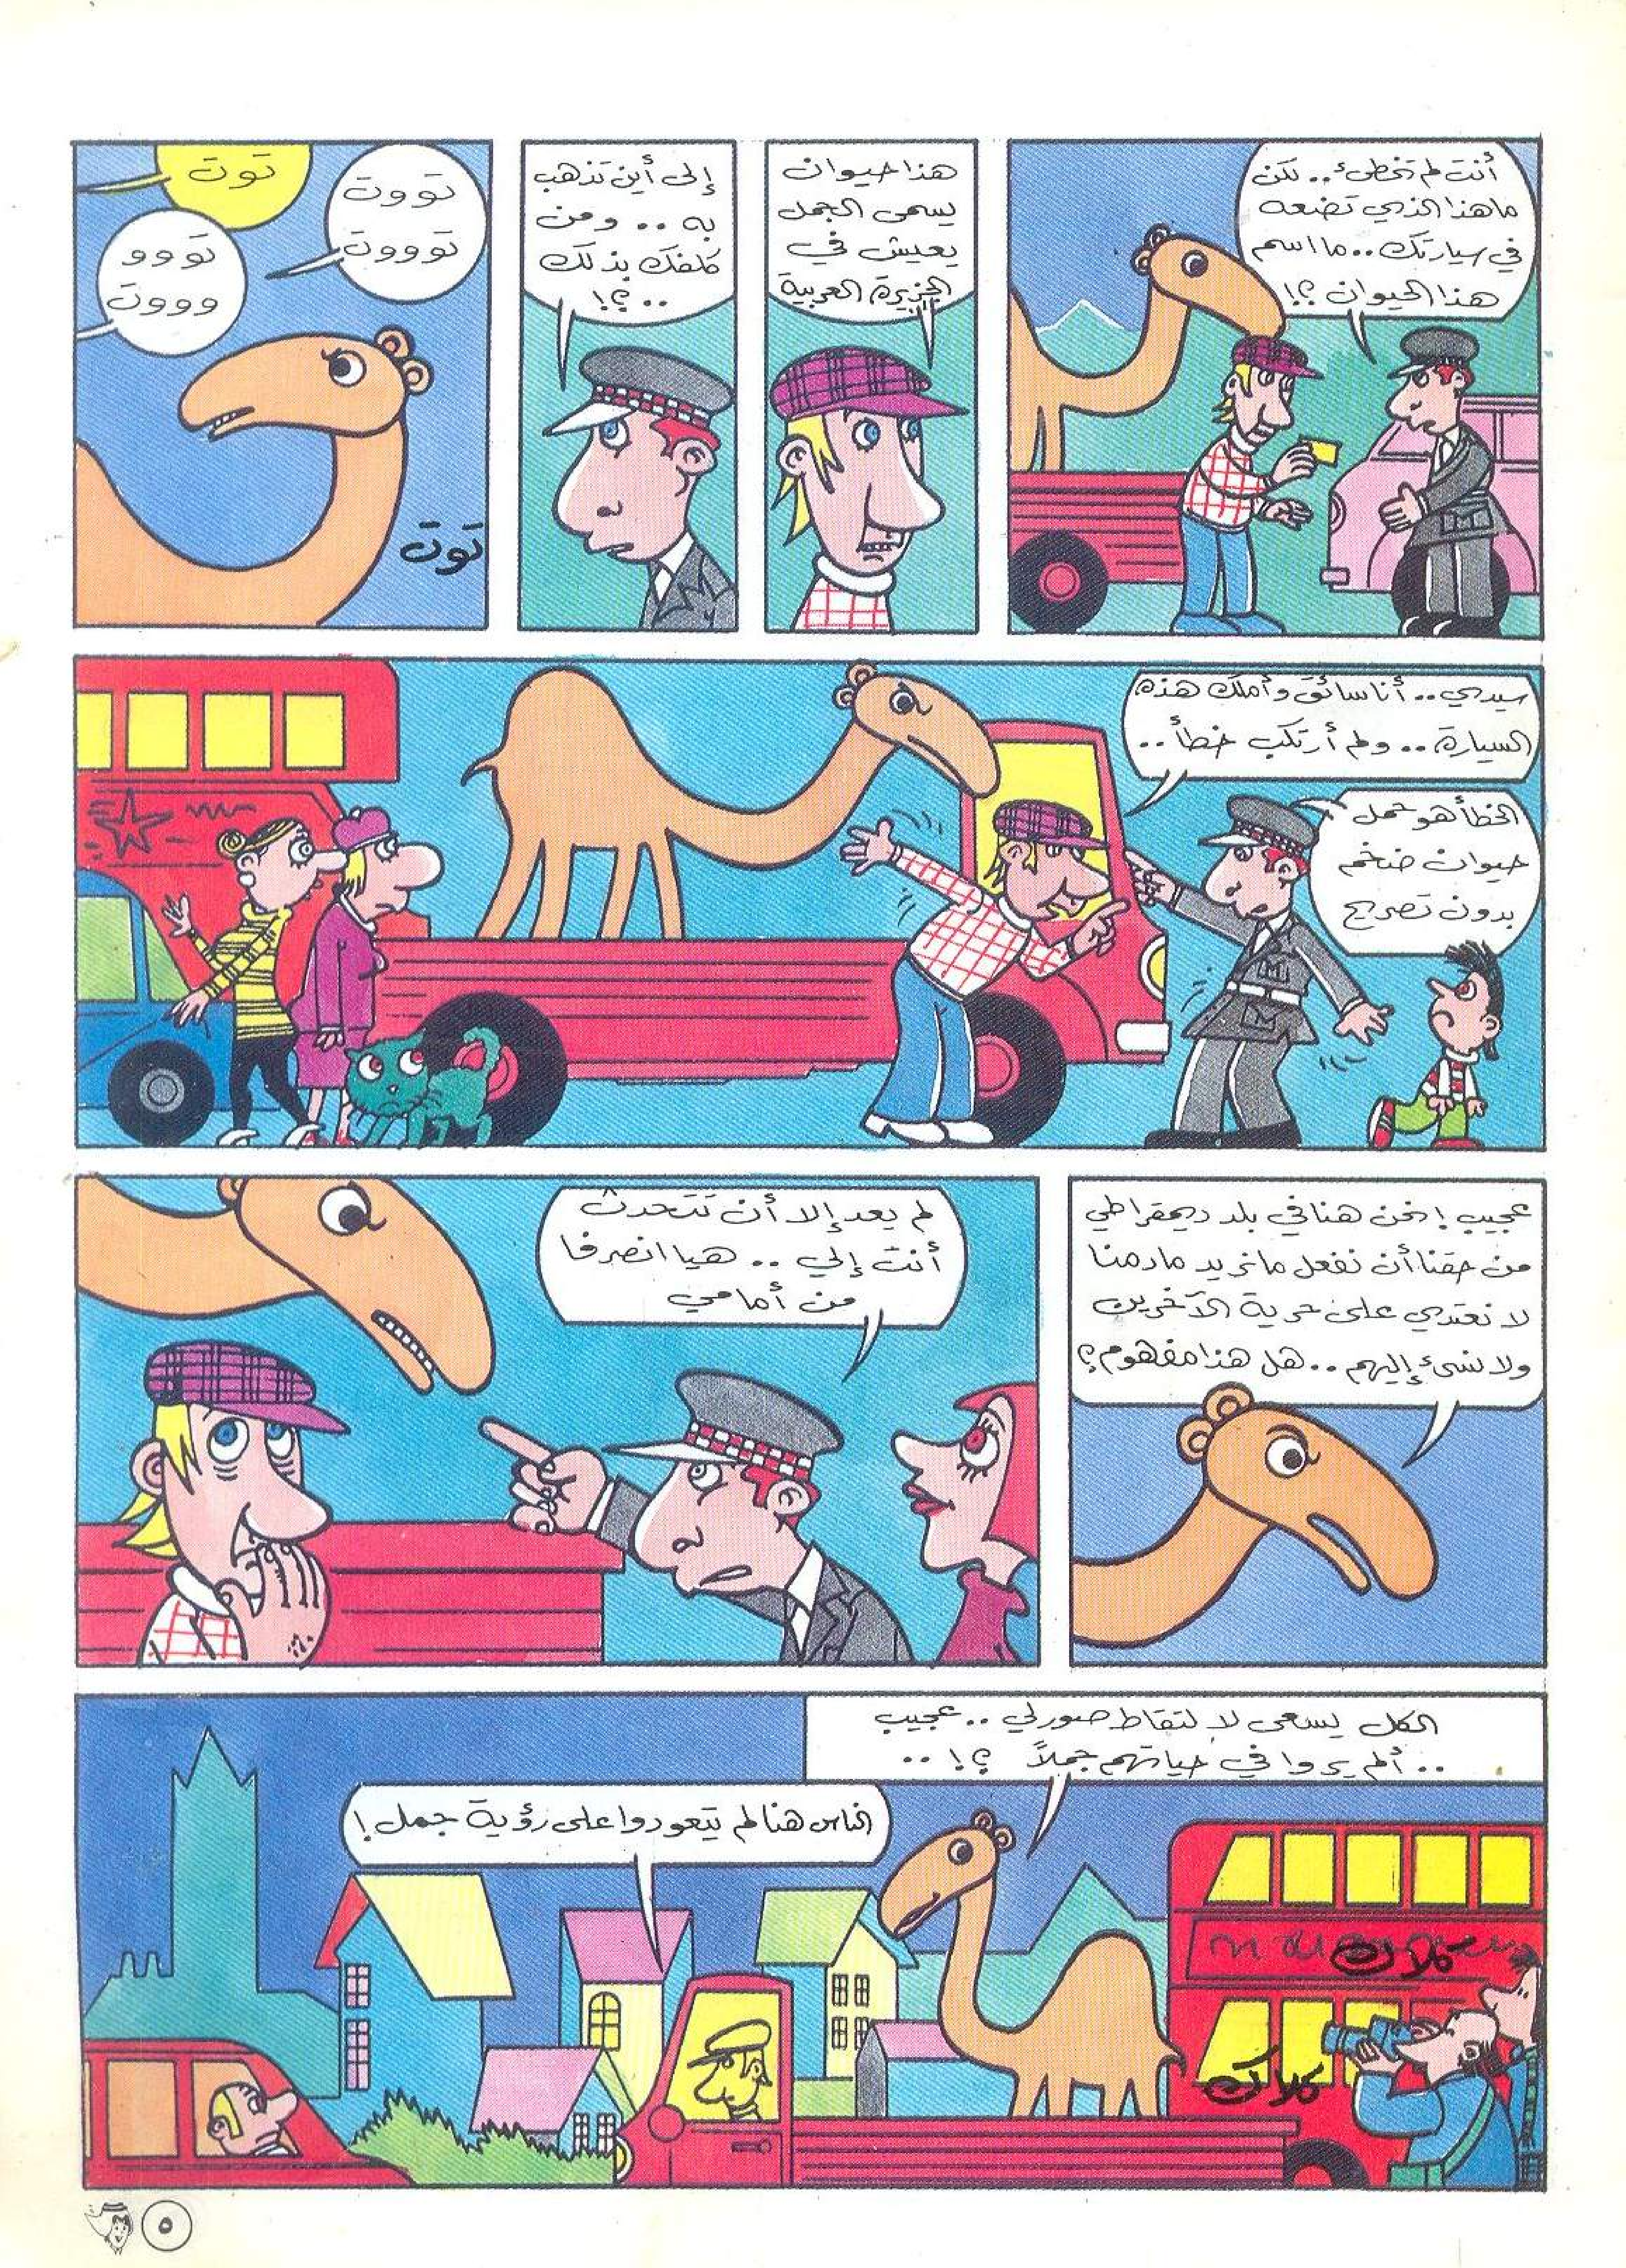 أنت لم تخطئ.. لكن
ما هذا الذي تضعه
في سيارتك.. ما اسم
هذا الحيوان ؟!
هذا حيوان
يسمى الجمل
يعيش في
الجزيرة العربية
إلى أين تذهب
به .. ومن
كلفك بذلك
.. ؟!
توت
تووت
توووت
تووو
وووت
توت
سيدي.. أنا سائق وأملك هذه
السيارة.. ولم أرتكب خطأ..
الخطأ هو حمل
حيوان ضخم
بدون تصريح
عجيب ! نحن هنا في بلد ديمقراطي
من حقنا أن نفعل ما نريد ما دمنا
لا نعتدي على حرية الآخرين
ولا نسئ إليهم.. هل هذا مفهوم؟
لم يعد إلا أن تتحدث
أنت إلي .. هيا انصرفا
من أمامي
الكل يسعى لالتقاط صور لي .. عجيب
.. ألم يروا في حياتهم جملاً ؟! ..
الناس هنا لم يتعودوا على رؤية جمل !
كلاك
كلاك
M
M
٥